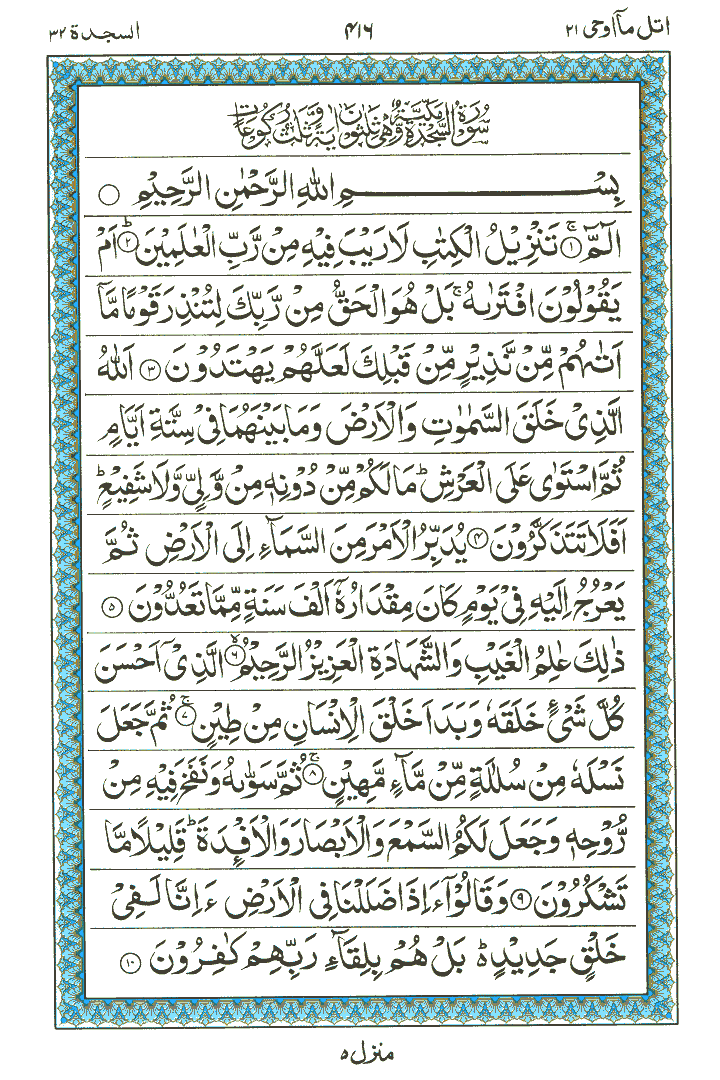 اتل مآ اوحی ۲۱ ۴۱۶ السجدة ۳۲
سُوْرَةُ السَّجْدَةِ مَكِّيَّةٌ وَّهِيَ ثَلٰثُوْنَ اٰيَةً وَّثَلٰثُ رُكُوْعَاتٍ
بِسْمِ اللّٰهِ الرَّحْمٰنِ الرَّحِيْمِ ○
الٓمّٓ ۚ﴿۱﴾ تَنْزِيْلُ الْكِتٰبِ لَا رَيْبَ فِيْهِ مِنْ رَّبِّ الْعٰلَمِيْنَ ؕ﴿۲﴾ اَمْ
يَقُوْلُوْنَ افْتَرٰىهُ ۚ بَلْ هُوَ الْحَقُّ مِنْ رَّبِّكَ لِتُنْذِرَ قَوْمًا مَّاۤ
اَتٰىهُمْ مِّنْ نَّذِيْرٍ مِّنْ قَبْلِكَ لَعَلَّهُمْ يَهْتَدُوْنَ ﴿۳﴾ اَللّٰهُ
الَّذِىْ خَلَقَ السَّمٰوٰتِ وَالْاَرْضَ وَمَا بَيْنَهُمَا فِىْ سِتَّةِ اَيَّامٍ
ثُمَّ اسْتَوٰى عَلَى الْعَرْشِ ؕ مَا لَكُمْ مِّنْ دُوْنِهٖ مِنْ وَّلِىٍّ وَّلَا شَفِيْعٍ ؕ
اَفَلَا تَتَذَكَّرُوْنَ ﴿۴﴾ يُدَبِّرُ الْاَمْرَ مِنَ السَّمَآءِ اِلَى الْاَرْضِ ثُمَّ
يَعْرُجُ اِلَيْهِ فِىْ يَوْمٍ كَانَ مِقْدَارُهٗۤ اَلْفَ سَنَةٍ مِّمَّا تَعُدُّوْنَ ﴿۵﴾
ذٰلِكَ عٰلِمُ الْغَيْبِ وَالشَّهَادَةِ الْعَزِيْزُ الرَّحِيْمُ ۙ﴿۶﴾ الَّذِىْۤ اَحْسَنَ
كُلَّ شَىْءٍ خَلَقَهٗ وَبَدَاَ خَلْقَ الْاِنْسَانِ مِنْ طِيْنٍ ۚ﴿۷﴾ ثُمَّ جَعَلَ
نَسْلَهٗ مِنْ سُلٰلَةٍ مِّنْ مَّآءٍ مَّهِيْنٍ ۚ﴿۸﴾ ثُمَّ سَوّٰىهُ وَنَفَخَ فِيْهِ مِنْ
رُّوْحِهٖ وَجَعَلَ لَكُمُ السَّمْعَ وَالْاَبْصَارَ وَالْاَفْـِٕدَةَ ؕ قَلِيْلًا مَّا
تَشْكُرُوْنَ ﴿۹﴾ وَقَالُوْۤا ءَاِذَا ضَلَلْنَا فِى الْاَرْضِ ءَاِنَّا لَفِىْ
خَلْقٍ جَدِيْدٍ ؕ۬ بَلْ هُمْ بِلِقَآئِ رَبِّهِمْ كٰفِرُوْنَ ﴿۱۰﴾
منزل ۵